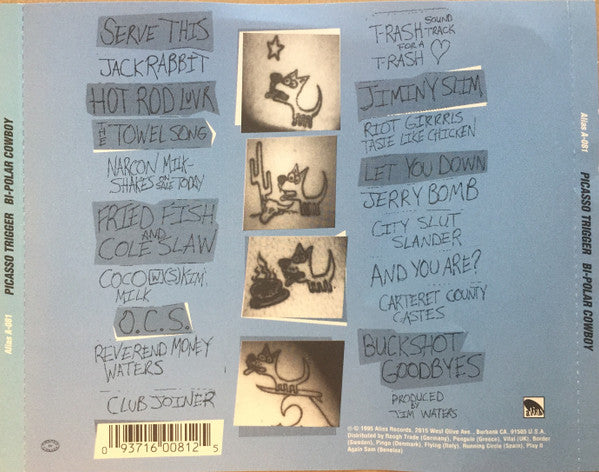 Alias A-081 PICASSO TRIGGER BI-POLAR COWBOY
SERVE THIS
JACKRABBIT
HOT ROD LUVR
THE TOWEL SONG
NARCON MILK-
SHAKES ON SALE TODAY
FRIED FISH
AND
COLE SLAW
COCO (W)(S) KIM
MILK
O.C.S.
REVEREND MONEY
WATERS
CLUB JOINER
0 93716 00812 5
T-RASH SOUND
TRACK
FOR A
T-RASH
JIMINY SLIM
RIOT GIRRRLS
TASTE LIKE CHICKEN
LET YOU DOWN
JERRY BOMB
CITY SLUT
SLANDER
AND YOU ARE?
CARTERET COUNTY
CASTES
BUCKSHOT
GOODBYES
PRODUCED
BY
JIM WATERS
℗ © 1995 Alias Records, 2815 West Olive Ave., Burbank CA. 91505 U.S.A.
Distributed by Rough Trade (Germany), Penguin (Greece), Vital (UK), Border
(Sweden), Pingo (Denmark), Flying (Italy), Running Circle (Spain), Play It
Again Sam (Benelux)
Alias A-081 PICASSO TRIGGER BI-POLAR COWBOY